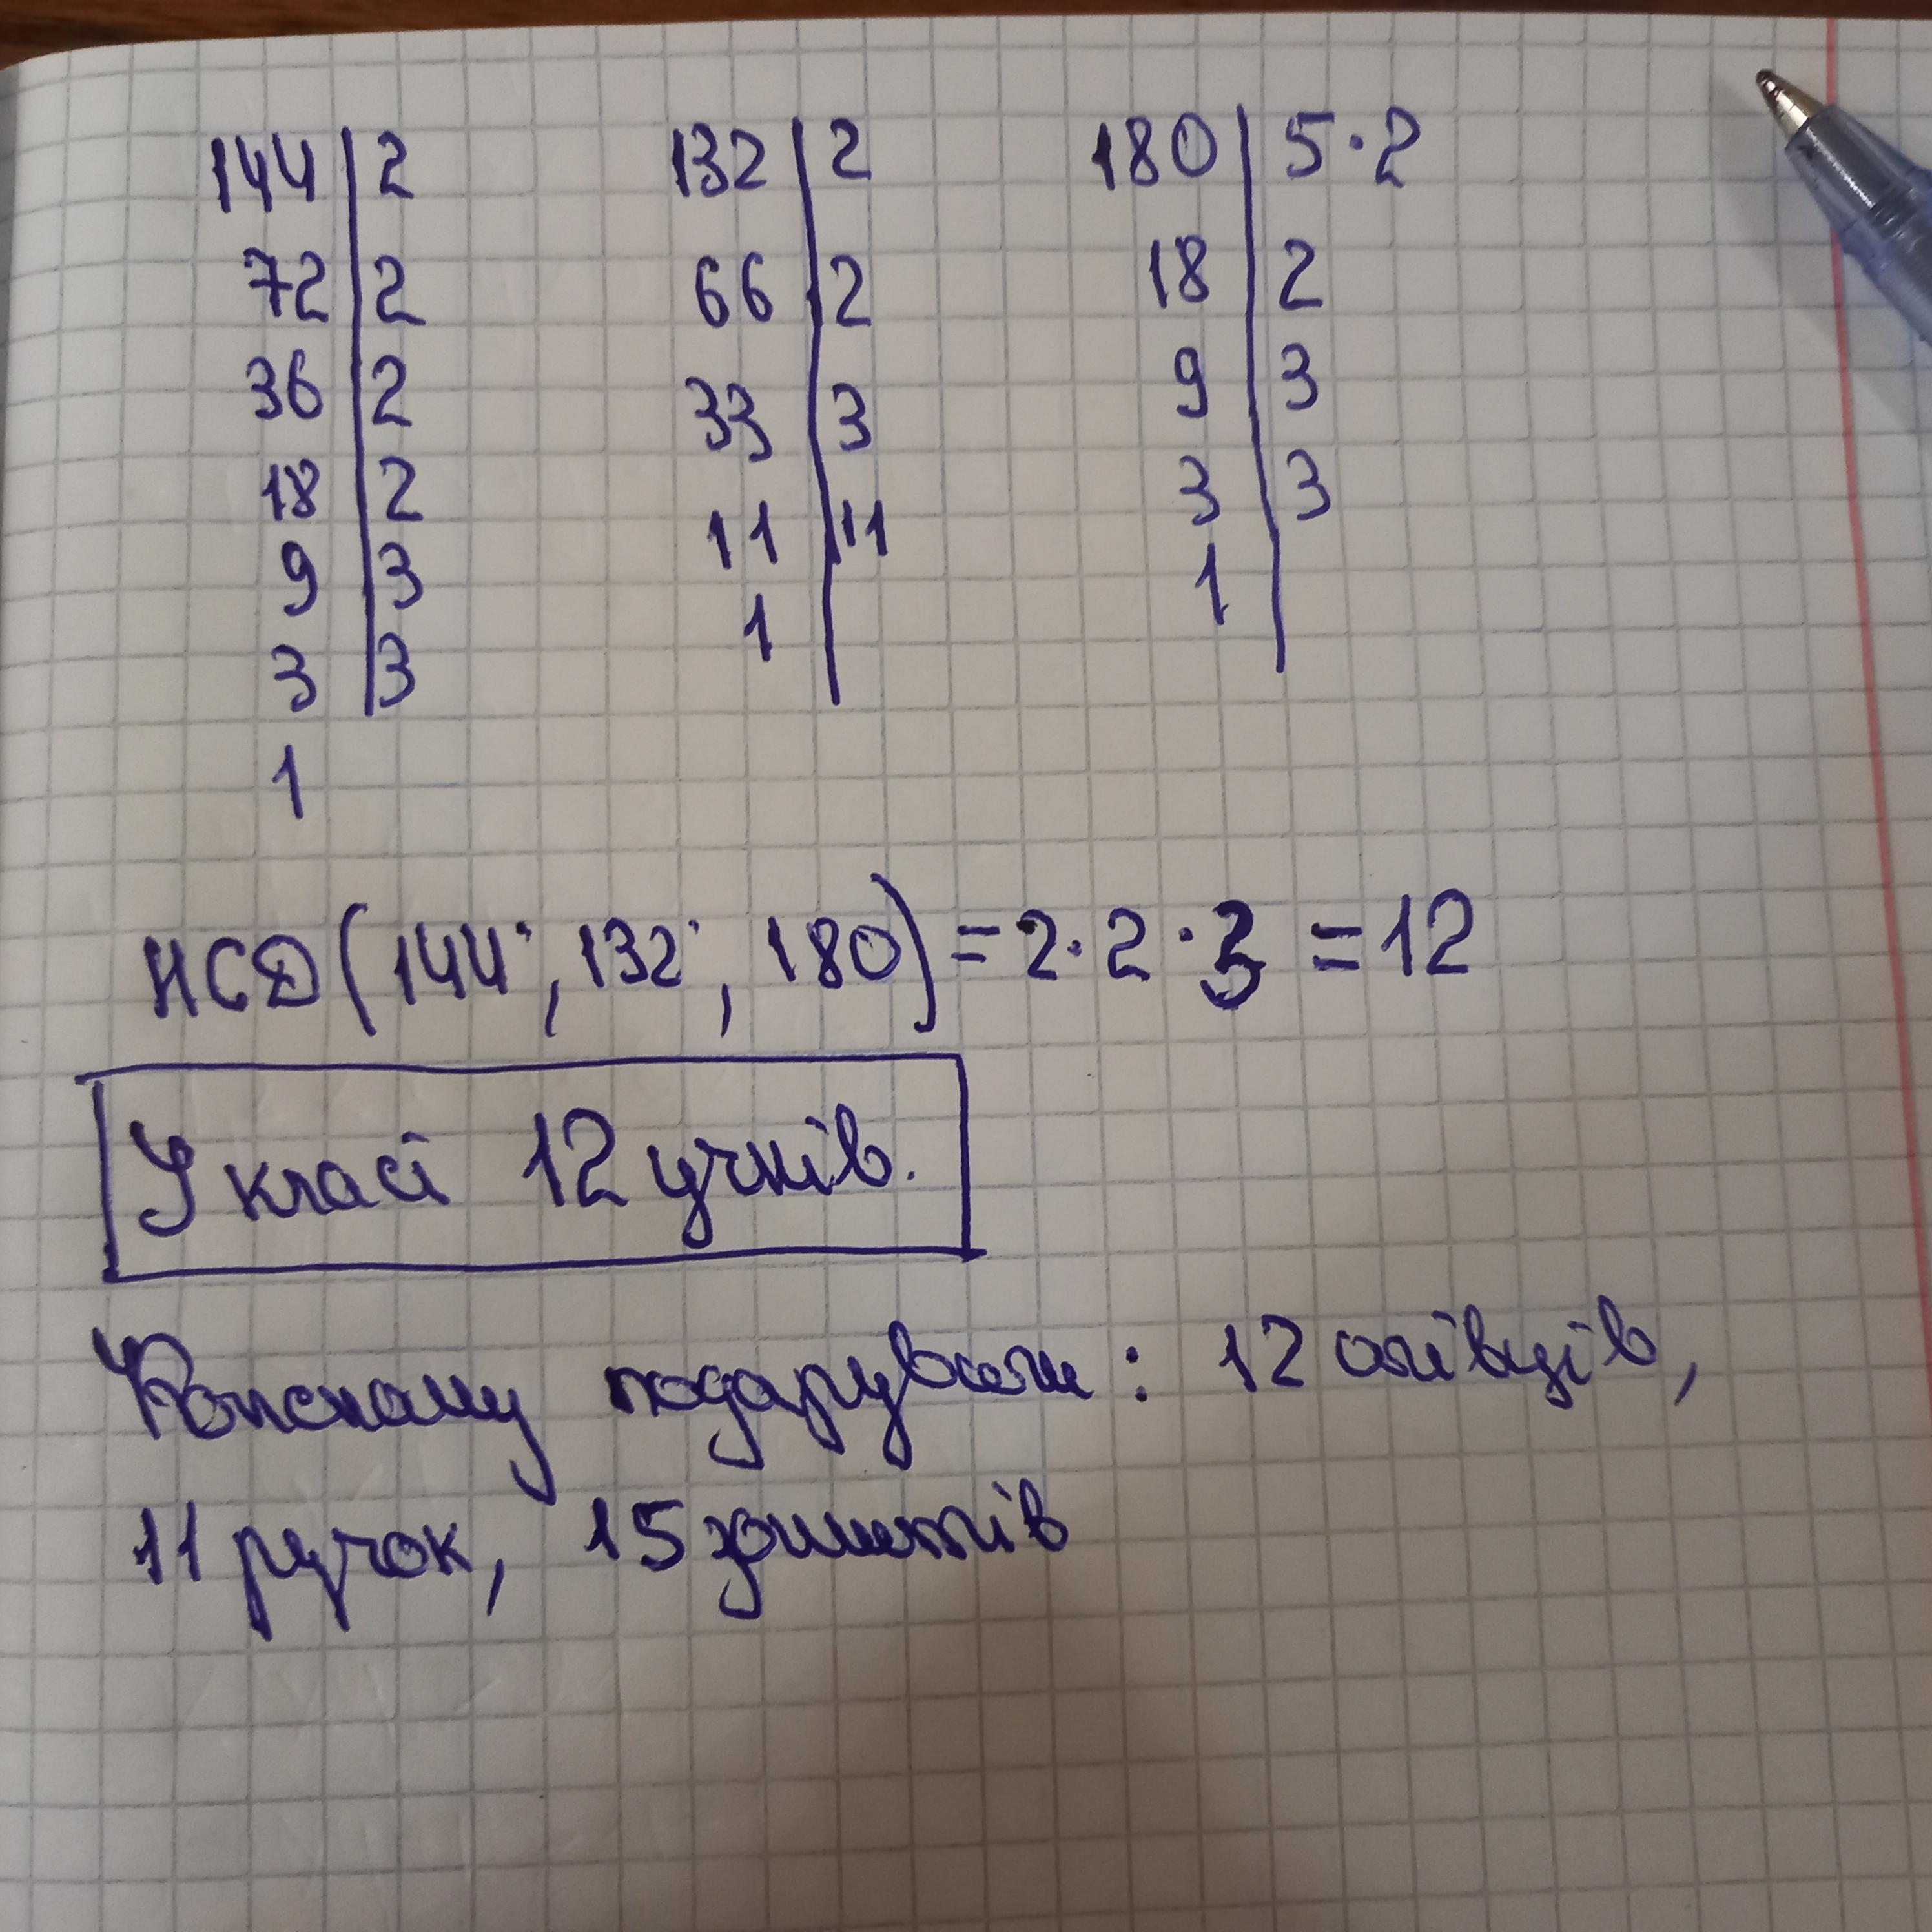 144 | 2 132 | 2 180 | 5·2
72 | 2 66 | 2 18 | 2
36 | 2 33 | 3 9 | 3
18 | 2 11 | 11 3 | 3
9 | 3 1 | 1 |
3 | 3
1
НСД(144; 132; 180) = 2·2·3 = 12
У класі 12 учнів.
Кожному подарували: 12 олівців,
11 ручок, 15 зошитів